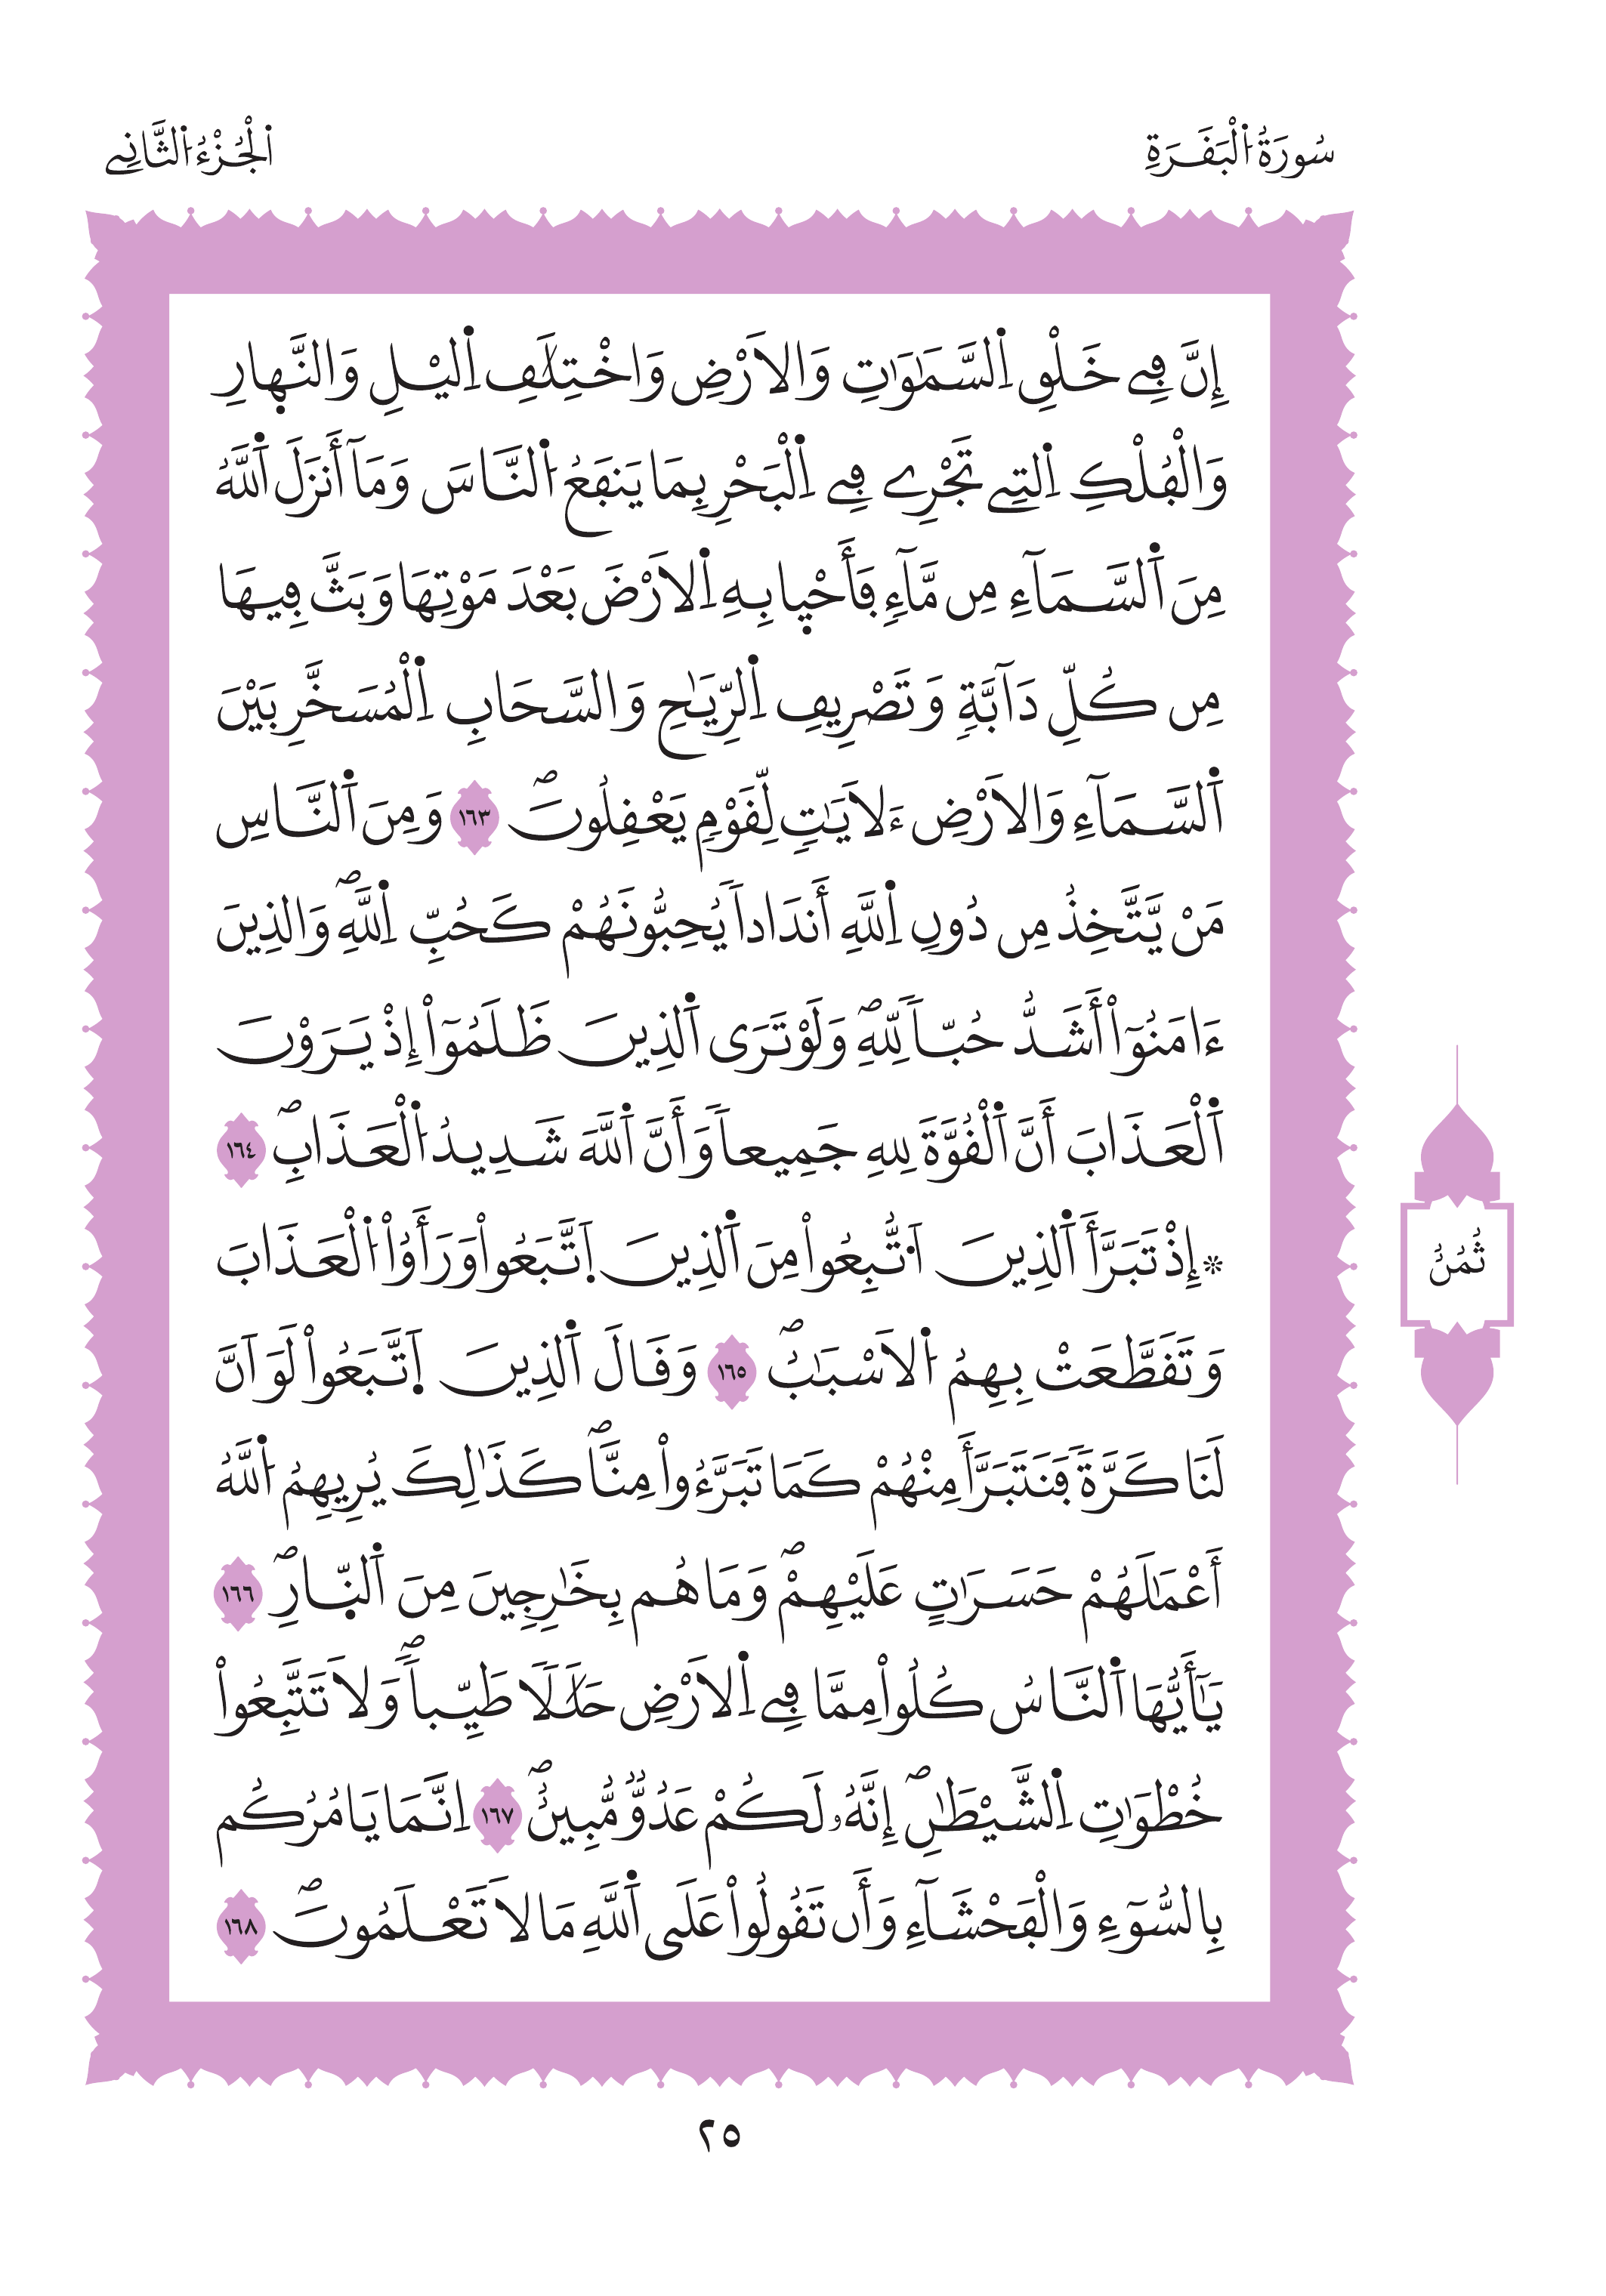 سُورَةُ اُ۬لْبَقَرَةِ
اَ۬لْجُزْءُ اُ۬لثَّانِے
إِنَّ فِے خَلْقِ اِ۬لسَّمَٰوَٰتِ وَالَارْضِ وَاخْتِلَٰفِ اِ۬ليْلِ وَالنَّه۪ارِ
وَالْفُلْكِ اِ۬لتِے تَجْرِے فِے اِ۬لْبَحْرِ بِمَا يَنفَعُ اُ۬لنَّاسَ وَمَآ أَنزَلَ اَ۬للَّهُ
مِنَ اَ۬لسَّمَآءِ مِن مَّآءٖ فَأَحْي۪ا بِهِ اِ۬لَارْضَ بَعْدَ مَوْتِهَا وَبَثَّ فِيهَا
مِن كُلِّ دَآبَّةٖ وَتَصْرِيفِ اِ۬لرِّيَٰحِ وَالسَّحَابِ اِ۬لْمُسَخَّرِ بَيْنَ
اَ۬لسَّمَآءِ وَالَارْضِ ءَلَايَٰتٖ لِّقَوْمٖ يَعْقِلُونَۖ ١٦٣ وَمِنَ اَ۬لنَّاسِ
مَنْ يَّتَّخِذُ مِن دُونِ اِ۬للَّهِ أَندَاداٗ يُحِبُّونَهُمْ كَحُبِّ اِ۬للَّهِۖ وَالذِينَ
ءَامَنُوٓاْ أَشَدُّ حُبّاٗ لِّلهِۖ وَلَوْ تَرَى اَ۬لذِينَ ظَلَمُوٓاْ إِذْ يَرَوْنَ
اَ۬لْعَذَابَ أَنَّ اَ۬لْقُوَّةَ لِلهِ جَمِيعاٗ وَأَنَّ اَ۬للَّهَ شَدِيدُ اُ۬لْعَذَابِۖ ١٦٤
۞إِذْ تَبَرَّأَ اَ۬لذِينَ اَ۟تُّبِعُواْ مِنَ اَ۬لذِينَ اَ۪تَّبَعُواْ وَرَأَوُاْ اُ۬لْعَذَابَ
وَتَقَطَّعَتْ بِهِمُ اُ۬لَاسْبَٰبُۖ ١٦٥ وَقَالَ اَ۬لذِينَ اَ۪تَّبَعُواْ لَوَ اَنَّ
لَنَا كَرَّةٗ فَنَتَبَرَّأَ مِنْهُمْ كَمَا تَبَرَّءُواْ مِنَّاۖ كَذَٰلِكَ يُرِيهِمُ اُ۬للَّهُ
أَعْمَٰلَهُمْ حَسَرَٰتٍ عَلَيْهِمْۖ وَمَا هُم بِخَٰرِجِينَ مِنَ اَ۬لنّ۪ارِۖ ١٦٦
يَٰٓأَيُّهَا اَ۬لنَّاسُ كُلُواْ مِمَّا فِے اِ۬لَارْضِ حَلَٰلاٗ طَيِّباٗۖ وَلَا تَتَّبِعُواْ
خُطْوَٰتِ اِ۬لشَّيْطَٰنِۖ إِنَّهُۥ لَكُمْ عَدُوّٞ مُّبِينٌۖ ١٦٧ اِنَّمَا يَامُرُكُم
بِالسُّوٓءِ وَالْفَحْشَآءِ وَأَن تَقُولُواْ عَلَى اَ۬للَّهِ مَا لَا تَعْلَمُونَۖ ١٦٨
ثُمُنُ
٢٥